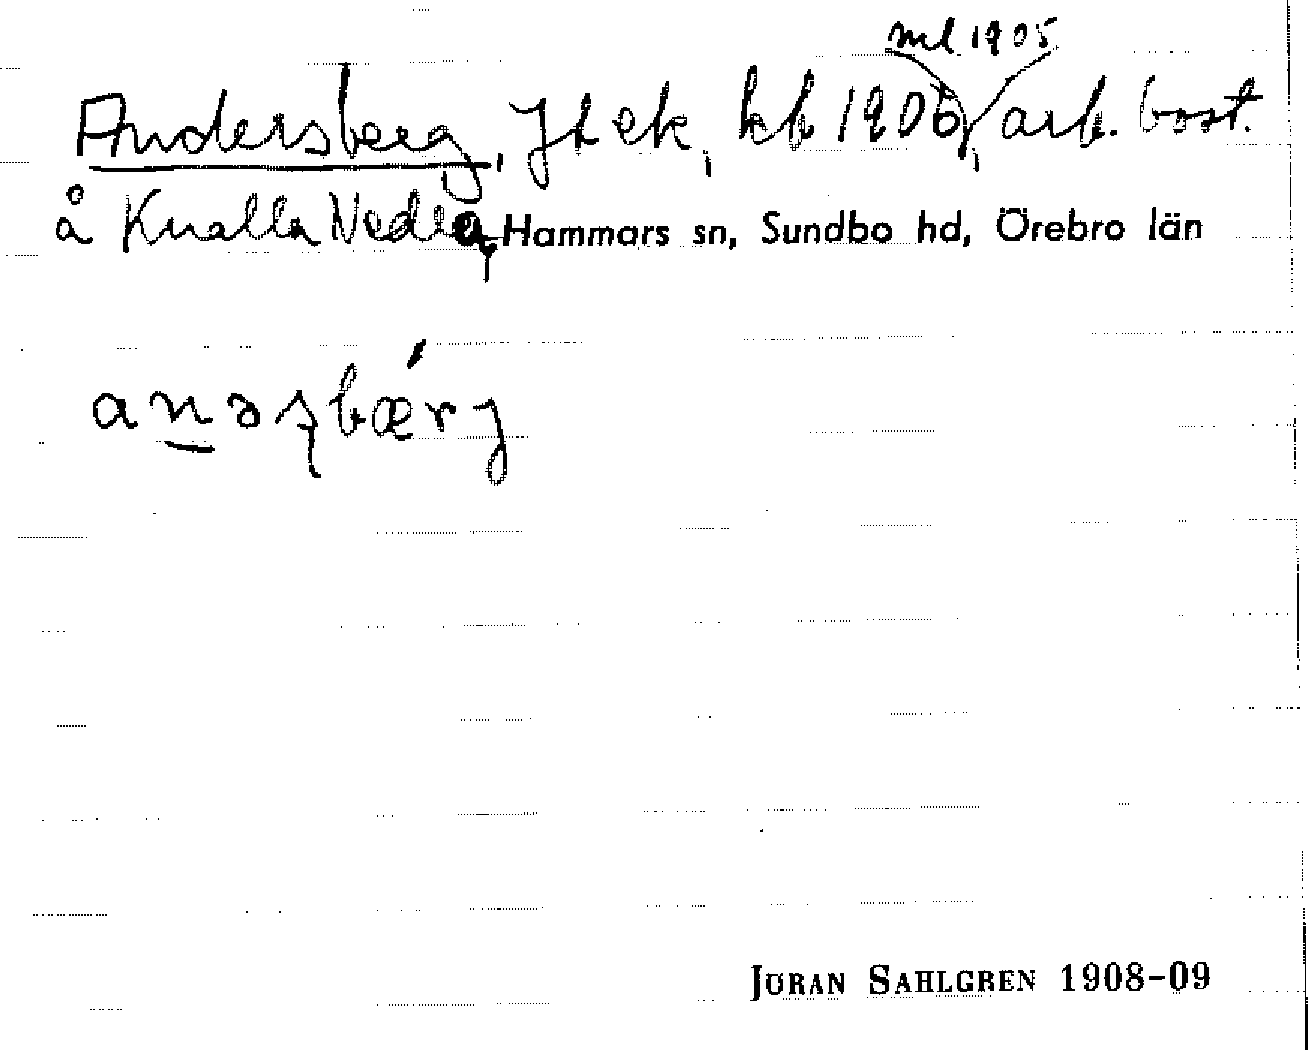 ml. 1905
Andersberg, Jt ek, kk 1906, arb. bost.
å Knalla Nedra, Hammars sn, Sundbo hd, Örebro län
anəʂbærj
JÖRAN SAHLGREN 1908-09